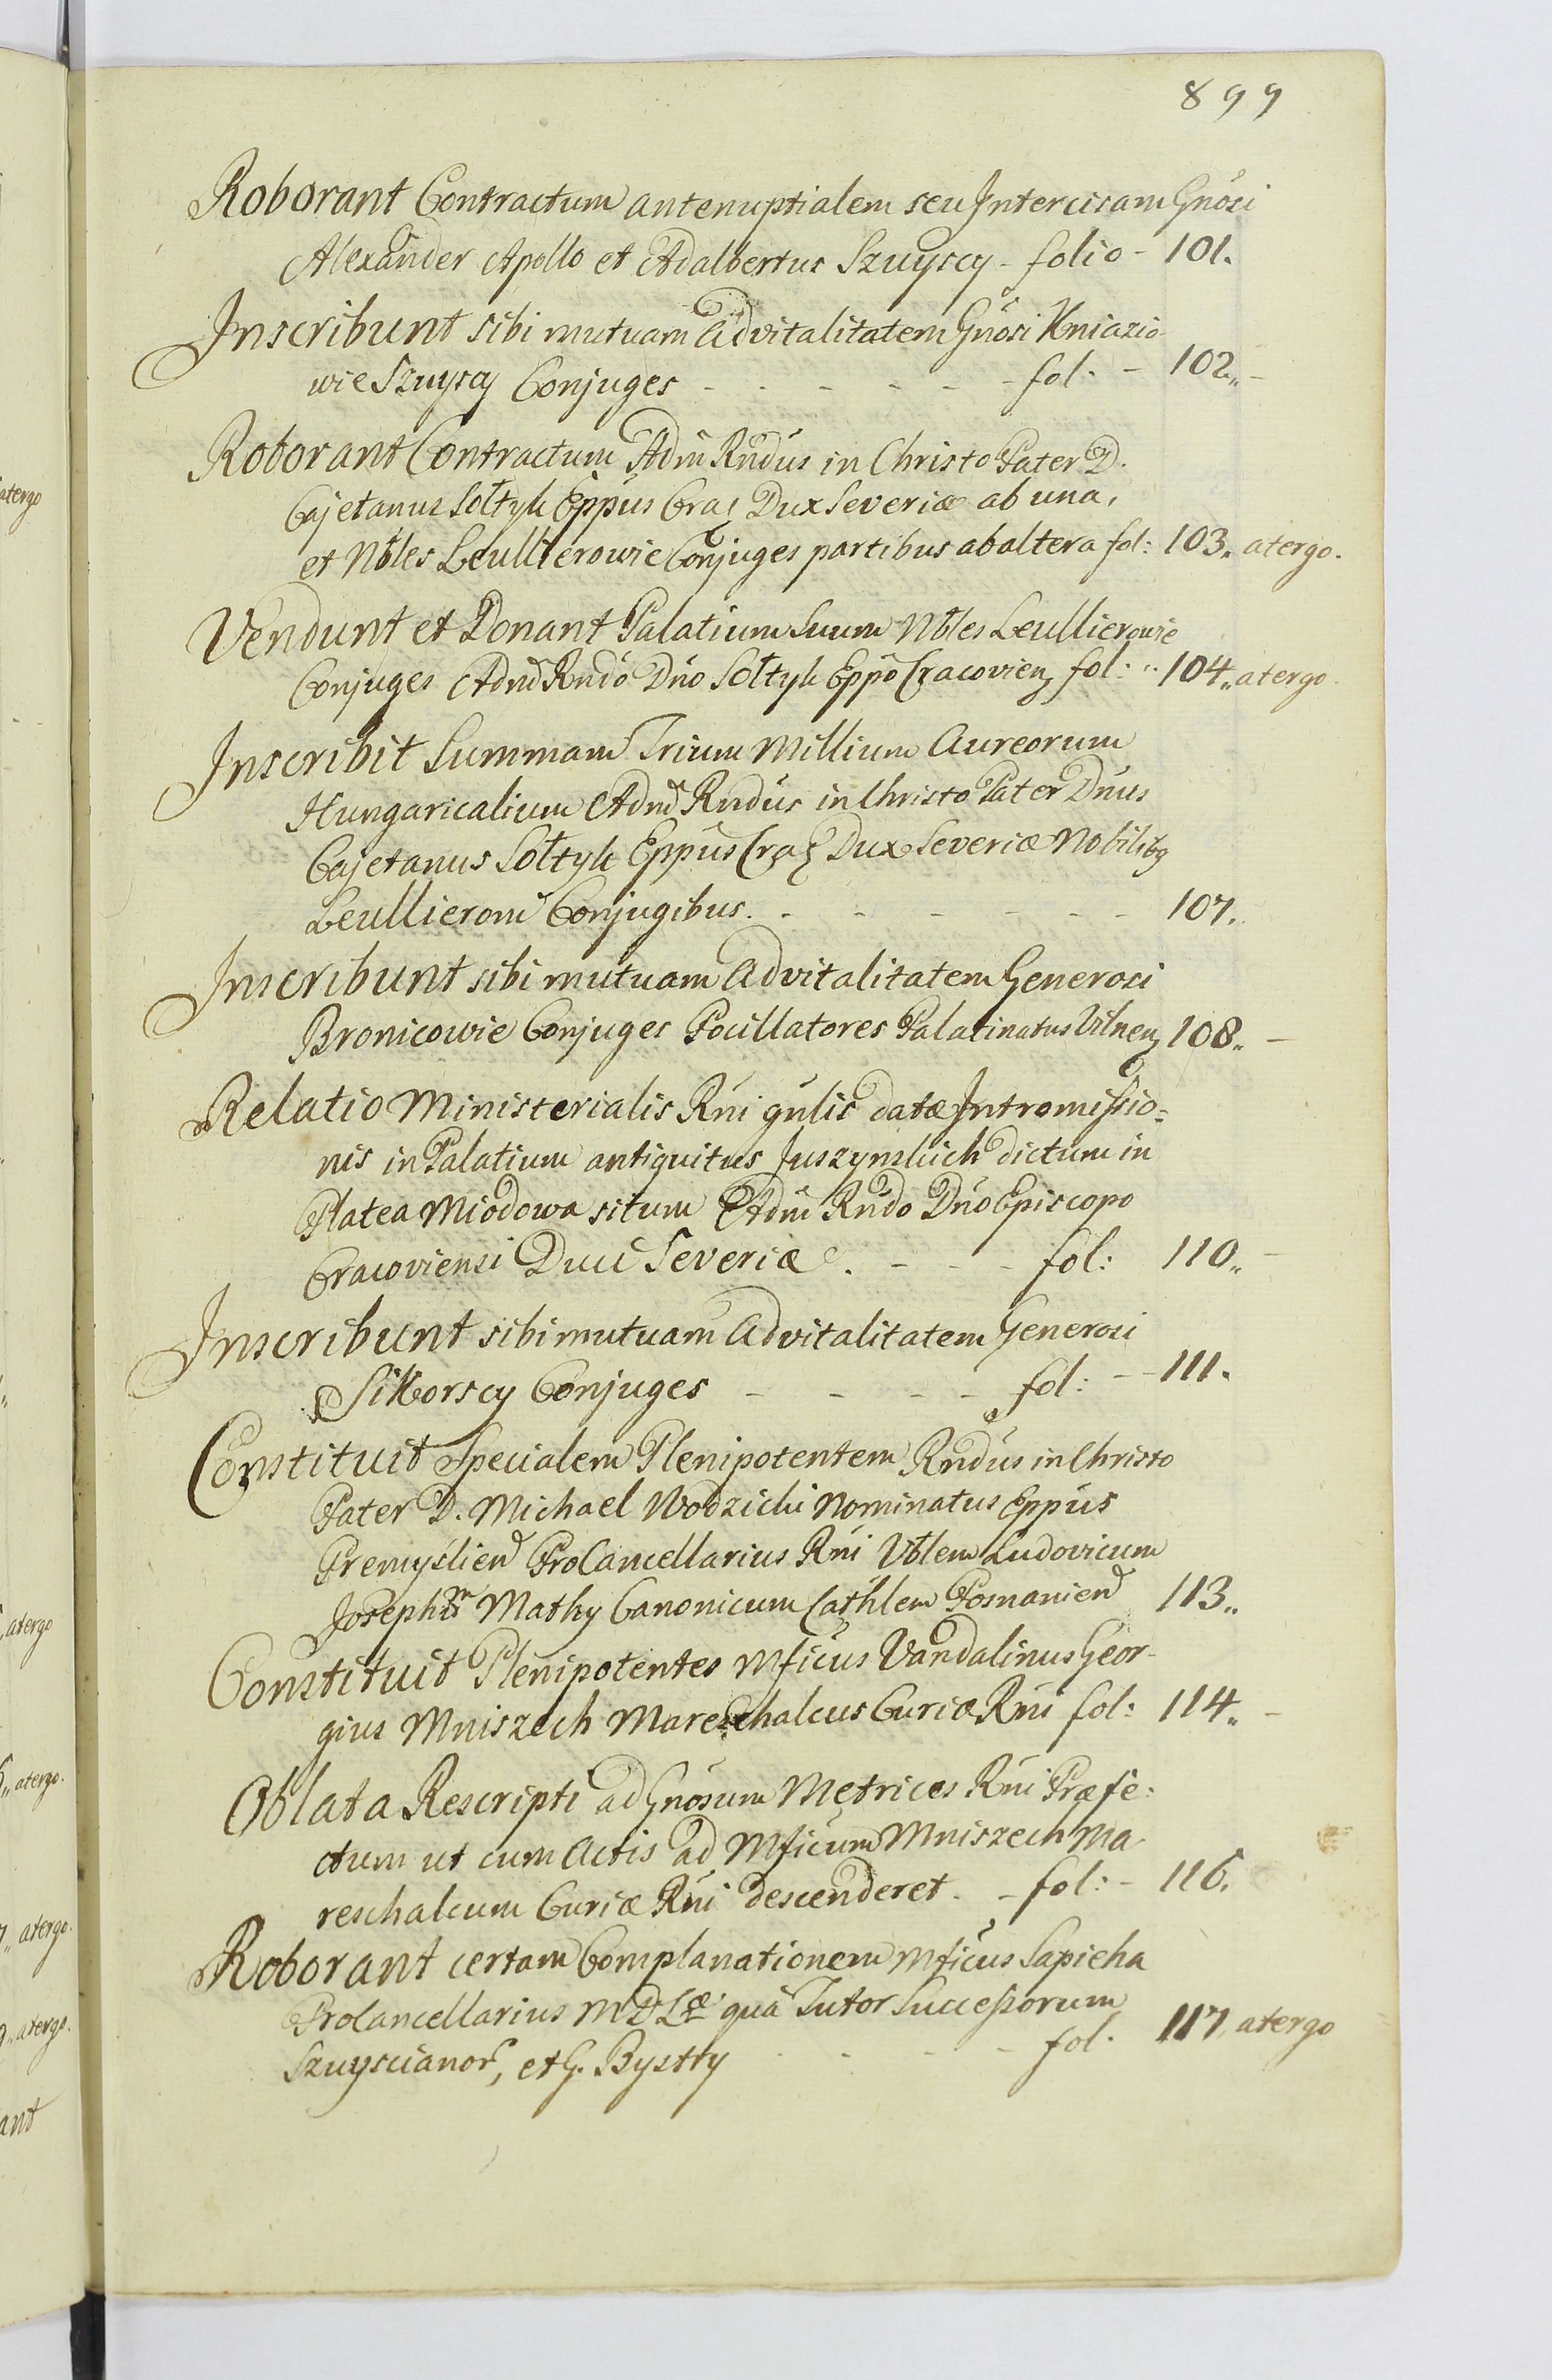 899
Roborant Contractum antenuptialem seu Intercisam Gnosi
Alexander Apollo et Adalbertus Szuyscy - folio - 101.
Inscribunt sibi mutuam Advitalitatem Gnosi Kniazio
wie Szuyscy Conjuges - - - - - fol: - 102.. -
Roborant Contractum Adm Rndus in Christo Pater D.
Cajetanus Sołtyk Eppus Crac Dux Severiæ ab una,
et Nbles Leullierowie Conjuges partibus ab altera fol: 103.. atergo.
Vendunt et Donant Palatium Suum Nbles Leullierowie
Conjuges Adm Rndo Dno Sołtyk Eppo Cracovien fol: .. 104.. atergo.
Inscribit Summam Trium Millium Aureorum
Hungaricalium Adm Rndus in Christo Pater Dnus
Cajetanus Sołtyk Eppus Crac Dux Severiæ Nobilibq
Leullierom Conjugibus. - - - - - - 107.
Inscribunt sibi mutuam Advitalitatem Generosi
Bronicowie Conjuges Pocillatores Palatinatus Vilnen 108.. -
Relatio Ministerialis Rni gnlis datæ Intromissio=
nis in Palatium antiquitus Juszynskich dictum in
Platea Miodowa situm Adm Rndo Dno Episcopo
Cracoviensi Duci Severiæ. - - - fol: 110.. -
Inscribunt sibi mutuam Advitalitatem Generosi
Sikorscy Conjuges - - - - fol: - - 111.
Constituit Specialem Plenipotentem Rndus in Christo
Pater D. Michael Wodzicki Nominatus Eppus
Premyslien ProCancellarius Rni Vblem Ludovicum
Josephum Mathy Canonicum Cathlem Posnanien 113..
Constituit Plenipotentes Mficus Vandalinus Geor-
gius Mniszech Mareschalcus Curiæ Rni fol: 114.. -
Oblata Rescripti ad Gnosum Metrices Rni Præfe:
ctum ut cum Actis ad Mficum Mniszech Ma-
reschalcum Curiæ Rni descenderet. - fol: - 116.
Roborant certam Complanationem Mficus Sapieha
Procancellarius M D Læ quà Tutor Successorum
Szuyscianor, et G. Bystry - - - - fol. 117. atergo